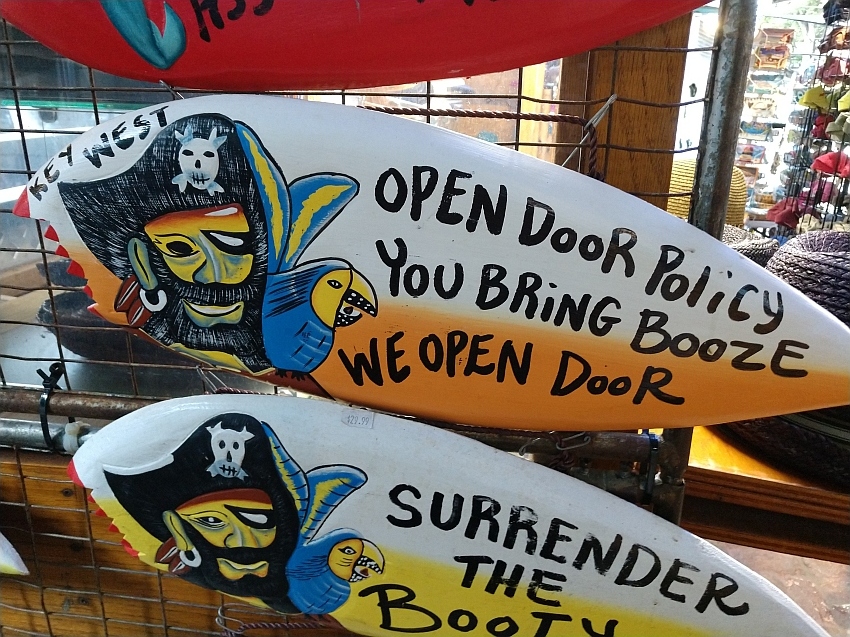 KEY WEST
OPEN DooR PoliCY
YOU BRiNG BOOZE
WE OPEN DooR
$29.99
SURRENDER
THE
BOOTY